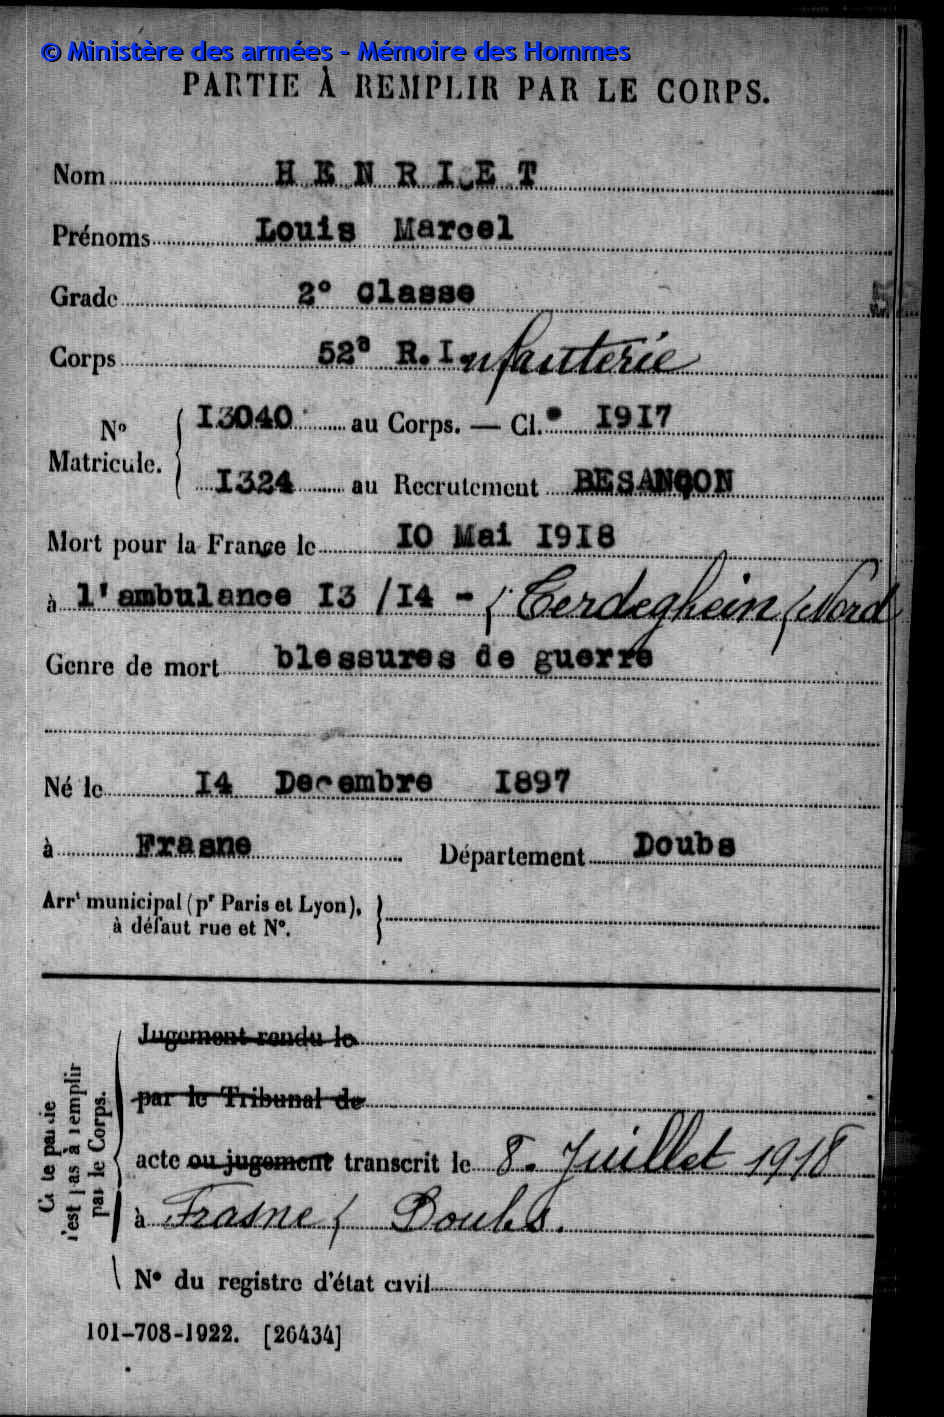 © Ministère des armées - Mémoire des Hommes
PARTIE À REMPLIR PAR LE CORPS.
Nom HENRIET
Prénoms Louis Marcel
Grade 2° Classe
Corps 52e R.I.nfanterie
N° Matricule. 13040 au Corps. — Cl. 1917
1324 au Recrutement BESANÇON
Mort pour la France le 10 Mai 1918
à l'ambulance 13/14 - ( Terdeghein (Nord
Genre de mort blessures de guerre
Né le 14 Decembre 1897
à Frasne Département Doubs
Arrt municipal (pr Paris et Lyon),
à défaut rue et N°.
Jugement rendu le
par le Tribunal de
acte ou jugement transcrit le 8. Juillet 1918
à Frasne ( Doubs.
N° du registre d'état civil
Cette partie
n'est pas à remplir
par le Corps.
101-708-1922. [26434]